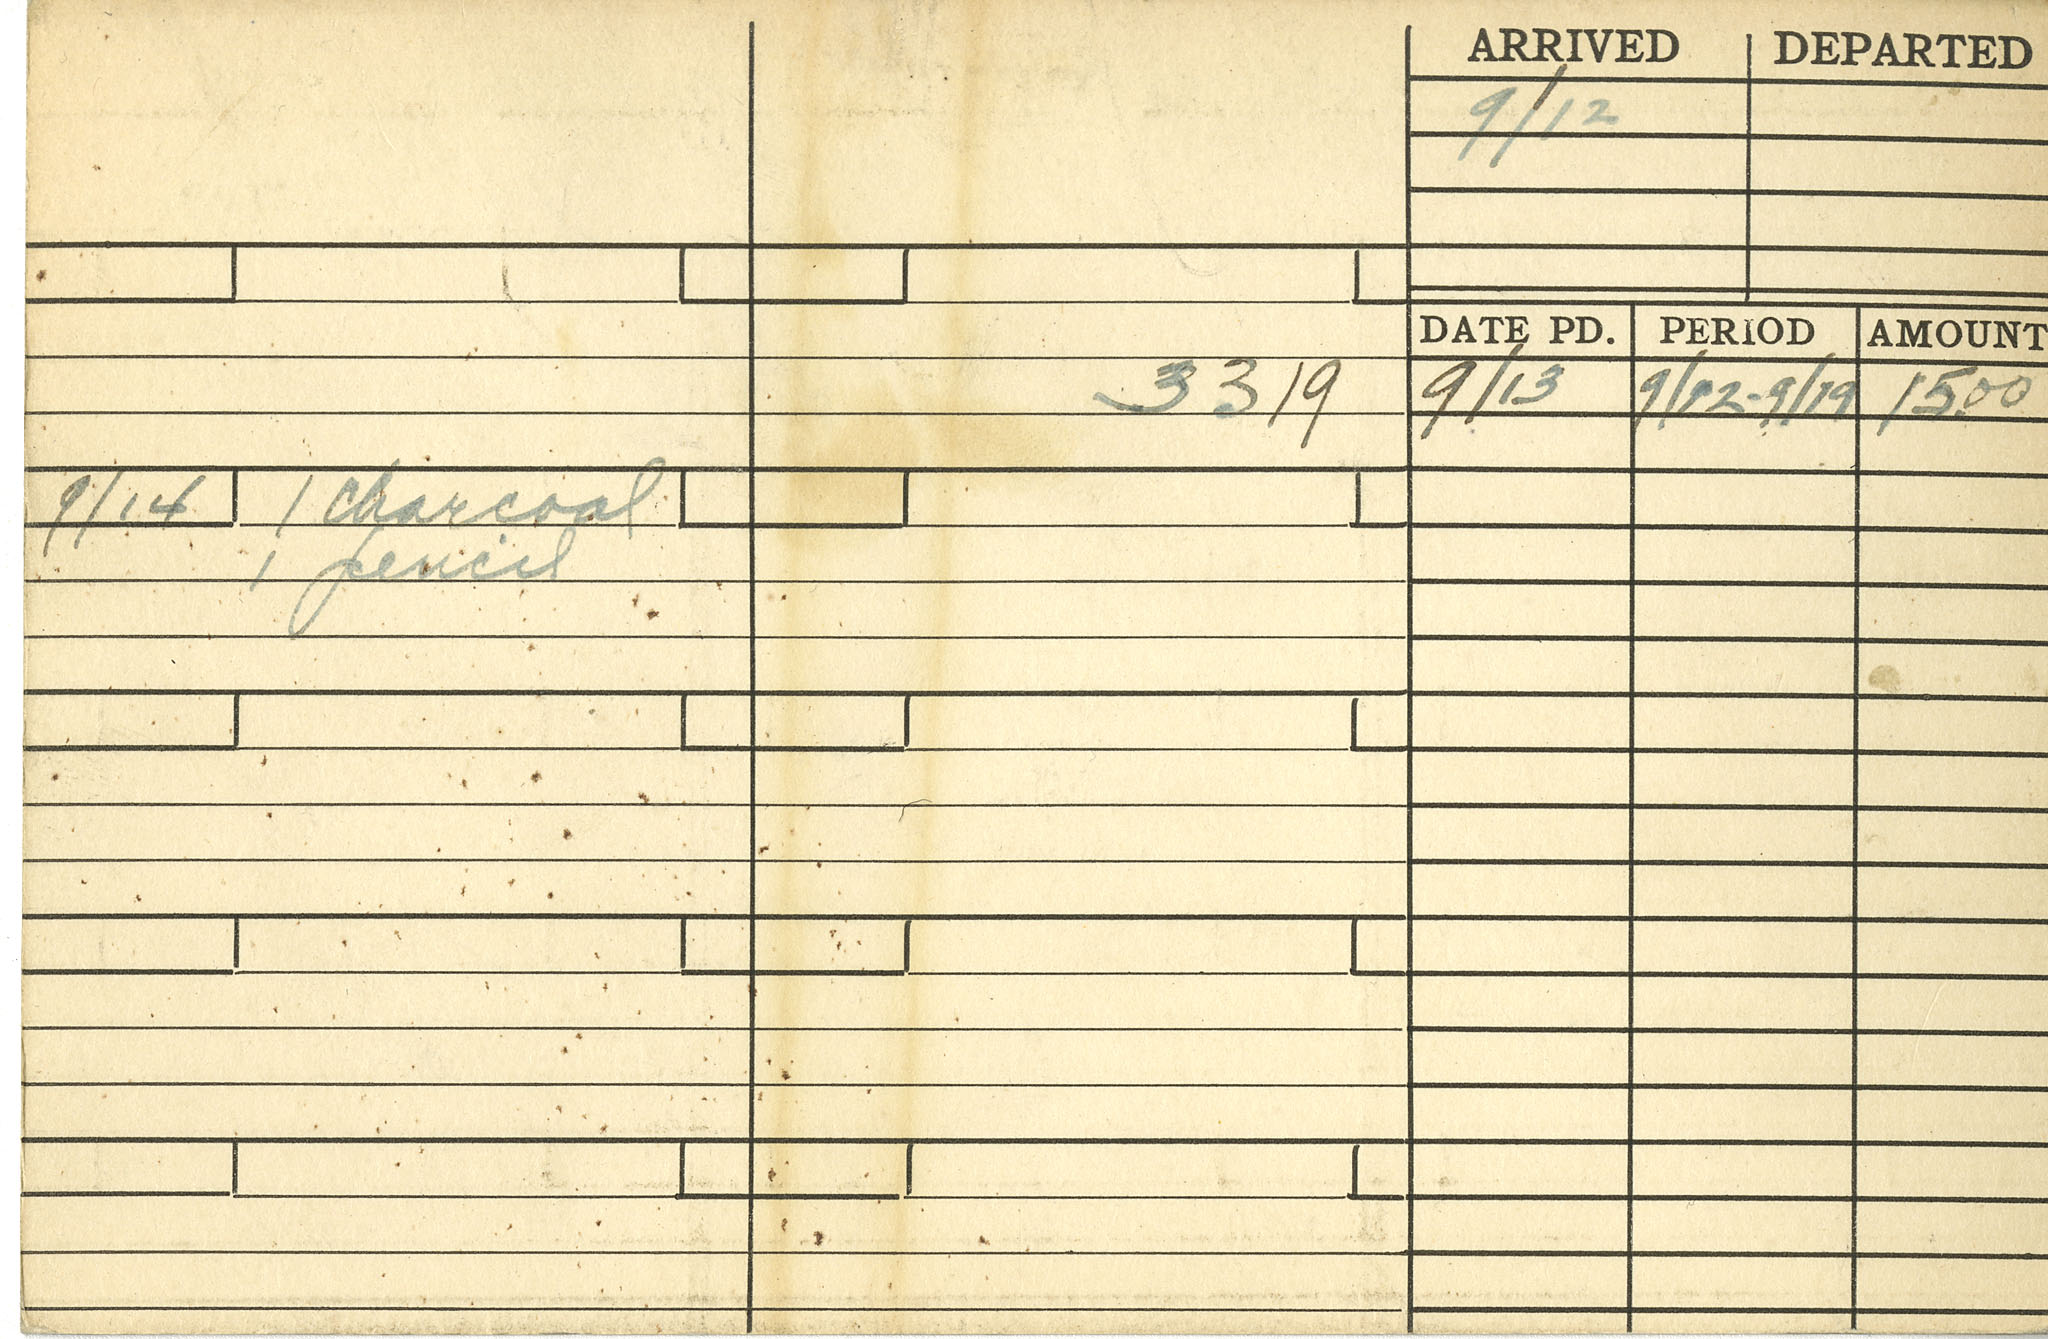 ARRIVED DEPARTED
9/12
DATE PD. PERIOD AMOUNT
3319 9/13 9/12-9/19 15.00
9/14 1 charcoal
1 pencil